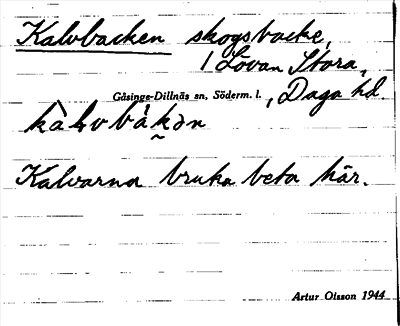 Kalvbacken skogsbacke,
/ Lövan Stora,
Gåsinge-Dillnäs sn, Söderm. l., Daga hd.
kàlvbákən
Kalvarna bruka beta här.
Artur Olsson 1944